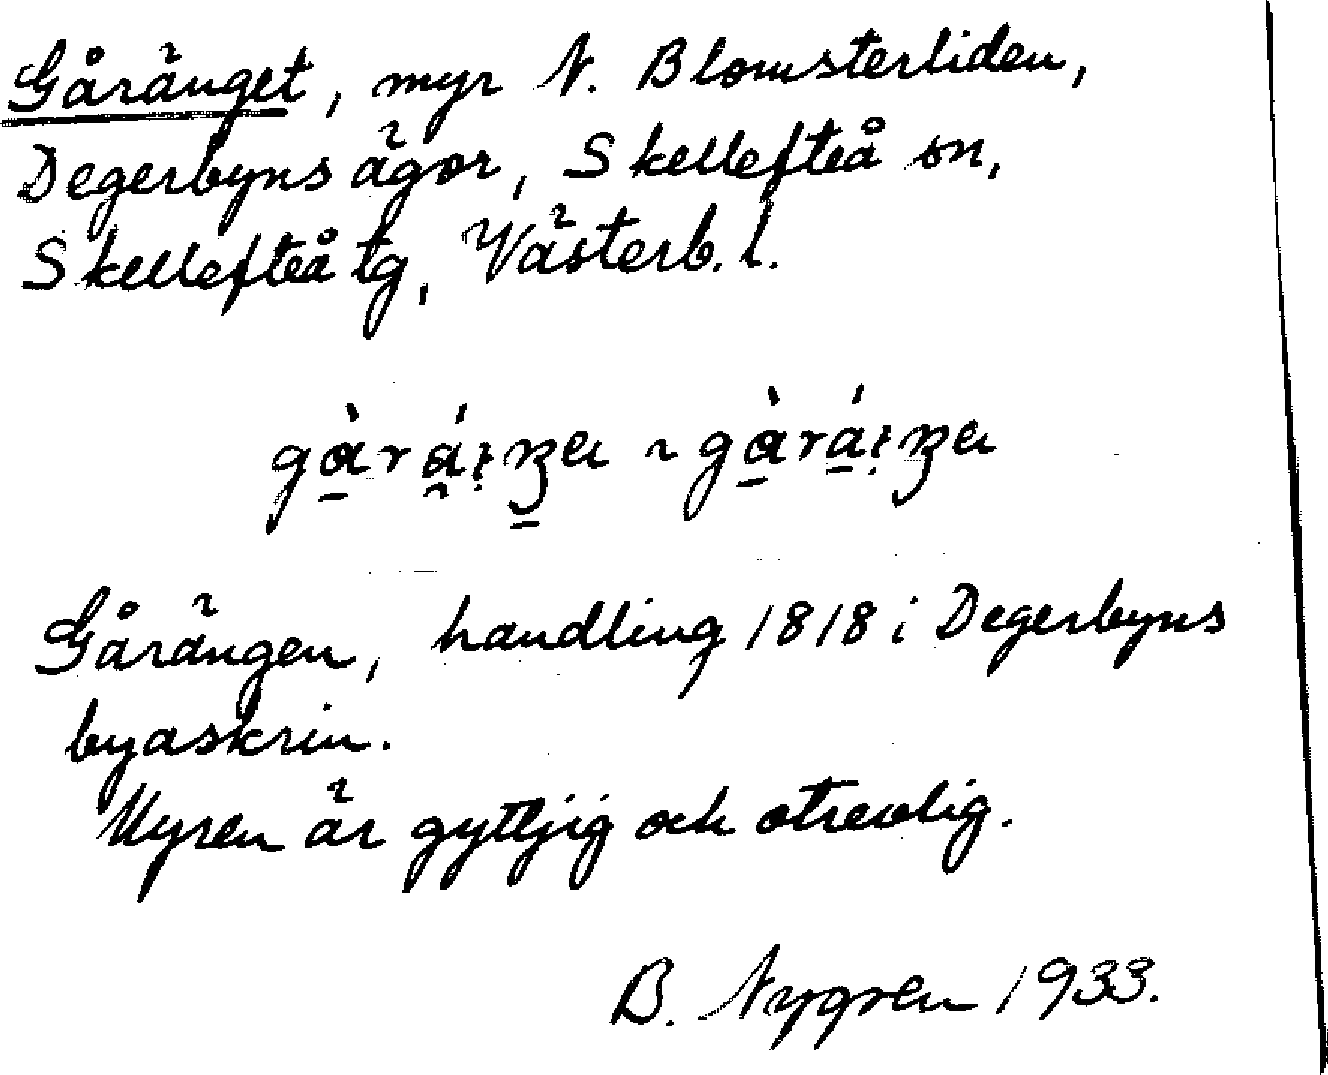 Gåränget, myr N. Blomsterliden,
Degerbyns ägor, Skellefteå sn,
Skellefteå tg, Västerb. l.
Gårängen, handling 1818 i Degerbyns
byaskrin.
Myren är gyttjig och otrevlig.
B. Nygren 1933.